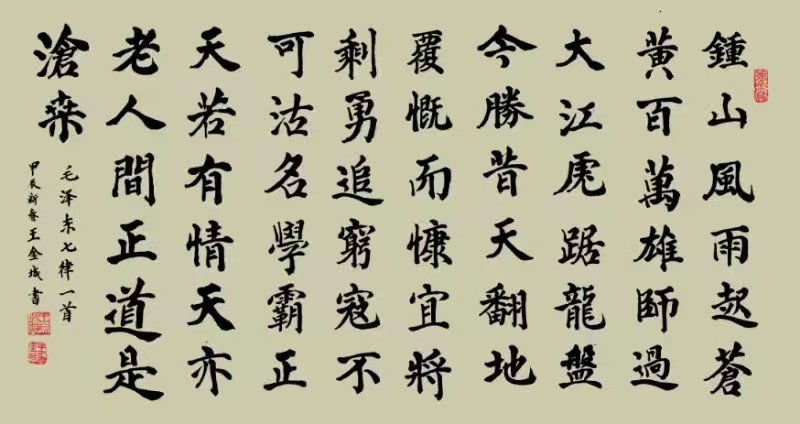 鍾山風雨起蒼
黃百萬雄師過
大江虎踞龍盤
今勝昔天翻地
覆慨而慷宜將
剩勇追窮寇不
可沽名學霸正
天若有情天亦
老人間正道是
滄桒
毛泽东七律一首
甲辰新春王金城書